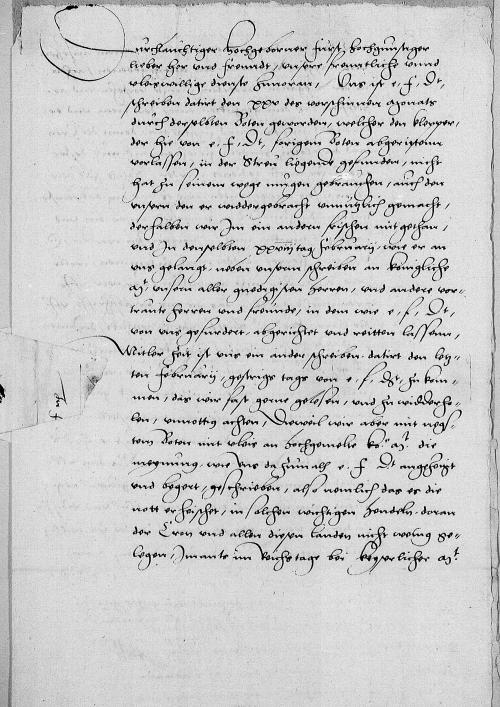 Durchlauchtiger hochgeborner furst, hochgunstiger
lieber her und freundt, unsere freuntliche unnd
vleis willige dienste zuuoran, Uns ist e, f, Dt,
schreiben datirt den xxv des vorschinnen Monats
durch derselbten Boten geworden, welcher den klopper,
der hie von e, f, Dt, forigem Boten abgerittenn
vorlassen, in der Streu ligende gefunden, nicht
hat zu seinem wege mugen gebrauchen, auch den
unsern den er widdergebracht unnutzlich gemacht,
derhalben wir Im ein andern frischen mit gethan,
und In denselbten xxviii tag february, wie er an
uns gelangt, neben unsern schreiben an konigliche
Mt. unsern aller gnedigsten herren, und andere vor-
traute herren und freunde, in dem wie e, f, Dt,
von uns gefurdert, abgerichtet und reitten lassenn,
Mitler Zeit ist uns ein ander schreiben datirt den letz-
ten february, gestrigs tags von e, f, Dt, zu kom-
men, das wir fast gerne gelesen, und zu widderho-
len, unnottig achten, Dieweil wir aber mit negs-
tem Boten mit vleis an hochgemelte ko. Mt. die
meynung, wie uns dazumalh e. f. Dt angezeigt
und begert, geschrieben, also nemlich das es die
nott erheischet, in solchen wichtigen hendeln, doran
der Cron und allen diesen landen nicht wenig ge-
legen, Imants im Reichstage bei keyserlicher Mt.